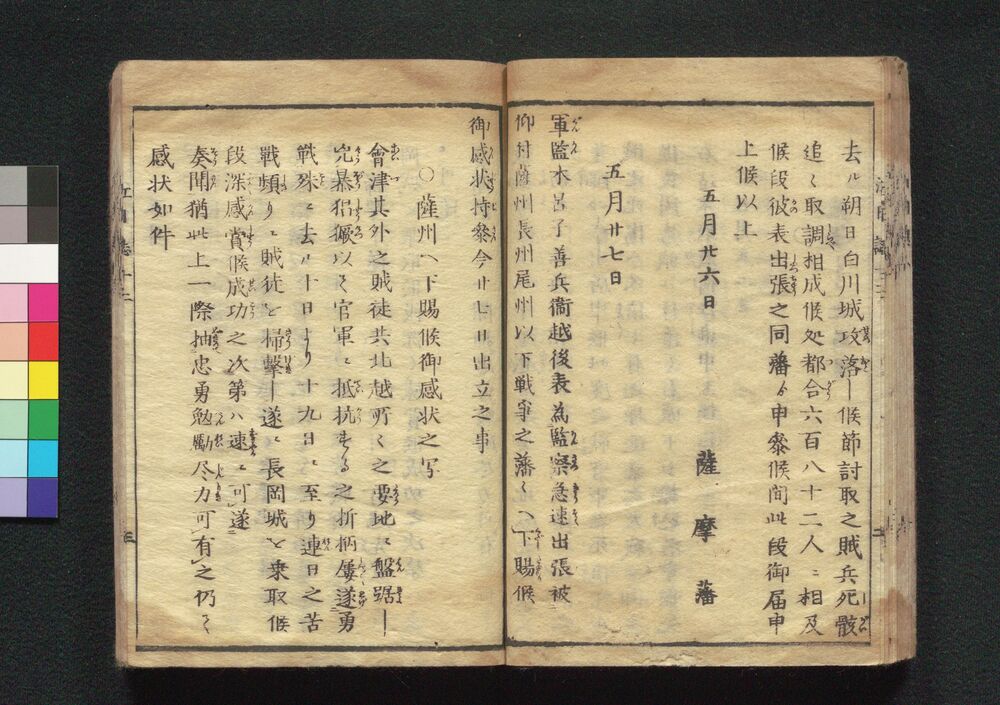 去ル朔日白川城攻落シ候節討取之賊兵死骸
追々取調相成候処都合六百八十二人ニ相及
候段彼表出張之同藩ゟ申參候間此段御届申
上候以上
五月廿六日
薩摩藩
五月廿七日
軍監木呂子善兵衞越後表為監察急速出張被
仰付薩州長州尾州以下戦爭之藩々ヘ下賜候
御感状持參今廿七日出立之事
○薩州ヘ下賜候御感状之写
會津其外之賊徒共北越所々之要地ニ盤踞シ
兇暴猖獗以テ官軍ニ抵抗する之折柄屡遂勇
戦殊ニ去ル十日より十九日ニ至り連日之苦
戦頻リニ賊徒を掃擊シ遂ニ長岡城を乗取候
段深感賞候成功之次第ハ速ニ可遂
奏聞猶此上一際抽忠勇勉勵尽力可有之仍て
感状如件